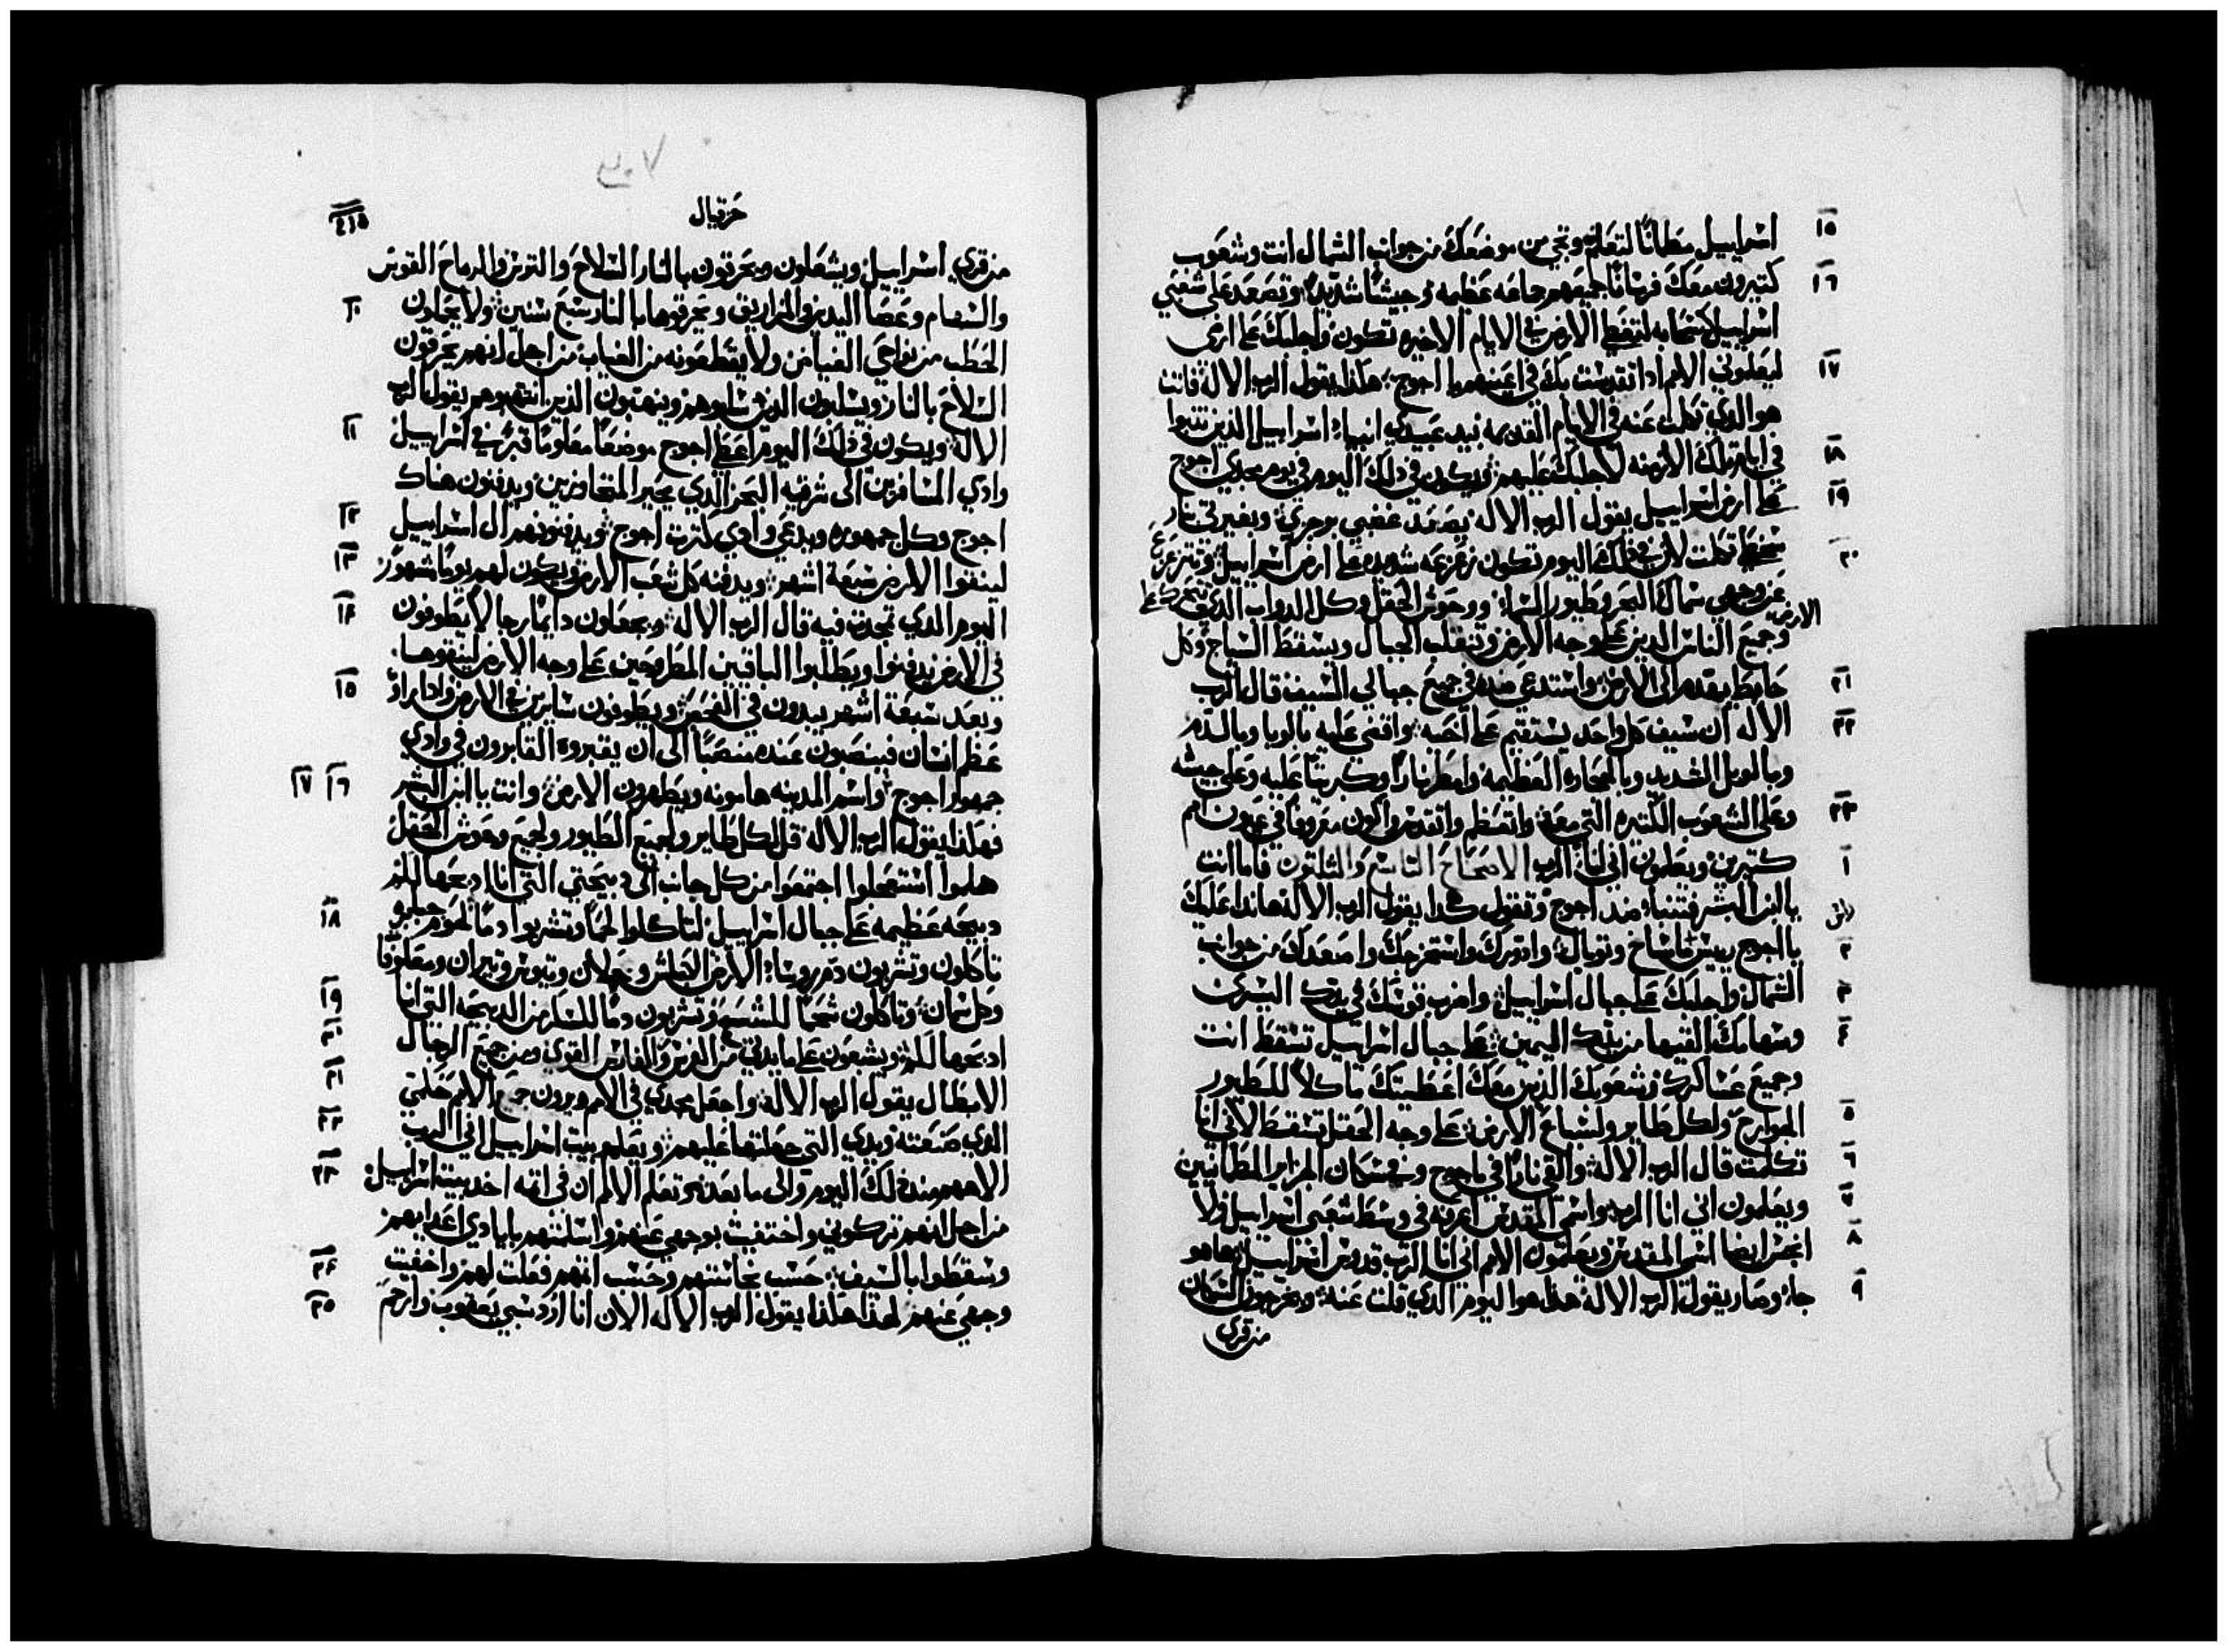 ١٥ اسراييل مطمانًا لتعلم وتجي من موضعك من جوانب الشمال انت وشعوب
١٦ كتيرون معك فرسانًا جميعهم جماعه عظيمه وجيشًا شديدًا وتصعد على شعبي
اسراييل كسحابه لتغطي الارض في الايام الاخيره تكون واجلبك على ارضي
١٧ ليعلموني الامم اذا تقدست بك في اعينهم يا اجوج هكذا يقول الرب الاله فانت
هو الذي تكلمت عنه في الايام القديمه بيد عبيدي انبياء اسراييل الذين تنبوا
١٨ في ايام تلك الازمنه لاجلبك عليهم ويكون في ذلك اليوم في يوم مجي اجوج
١٩ على ارض اسراييل يقول الرب الاله يصعد غضبي برجزي وبغيرتي بنار
٢٠ سخطي تكلمت لان في ذلك اليوم تكون زعزعه شديده على ارض اسراييل وتتزعزع
عن وجهي سماك البحر وطيور السماء ووحوش الحقل وكل الدواب الذي تتحرك على
الارض
وجميع الناس الذين على وجه الارض وتنقلب الجبال ويسقط السياج وكل
٢١ حايط يقدم الى الارض واستدعي ضده في جميع جبالي السيف قال الرب
٢٢ الاله ان سيف كل واحد يستقيم على اخيه واقضي عليه بالوبا وبالدم
وبالوبل الشديد وبالحجاره العظيمه وامطر نارًا وكبريتًا عليه وعلى جيشه
٢٣ وعلى الشعوب الكتيره التي معه واتعظم واتقدس واكون معروفًا في عيون امم
١ كتيرين ويعلمون اني انا الرب الاصحاح التاسع والتلتون فاما انت
يا ابن البشر فتنبا ضد اجوج وتقول هكذا يقول الرب الاله هانذا عليك
٢ يا اجوج رييس ماساخ وتوبال وادورك واستخرجك واصعدك من جوانب
٣ الشمال واجلبك على جبال اسراييل واضرب قوسك في يدك اليسرى
٤ وسهامك القيها من يدك اليمين على جبال اسراييل تسقط انت
وجميع عساكرك وشعوبك الذين معك اعطيتك ماكلاً للطيور
٥ الجوارح ولكل طاير ولسباع الارض على وجه الحقل تسقط لاني انا
٦ تكلمت قال الرب الاله والقي نارًا في ماجوج وفي سكان الجزاير المطمانيين
٧ ويعلمون اني انا الرب واسمي المقدس اعرفه في وسط شعبي اسراييل ولا
٨ انجس ايضا اسمي المقدس ويعلمون الامم اني انا الرب قدوس اسراييل هاهو
٩ جاء وصار يقول الرب الاله هذا هو اليوم الذي قلت عنه ويخرجون السكان
من قرى
حزقيال
٤١٥
من قرى اسراييل ويشعلون ويحرقون بالنار السلاح والترس والرماح القوس
١٠ والسهام وعصا اليد والمزاريق ويحرقوها بالنار سبع سنين ولا يحملون
الحطب من نواحي الغياض ولا يقطعونه من الغياب من اجل انهم يحرقون
السلاح بالنار ويسلبون الذين سلبوهم وينهبون الذين انتهبوهم يقول الرب
١١ الاله ويكون في ذلك اليوم اعطي اجوج موضعًا معلومًا قبرًا في اسراييل
وادي المسافرين الى شرقيه البحر الذي يحير المتجاوزين ويدفنون هناك
١٢ اجوج وكل جمهوره ويدعي وادي كترت اجوج ويدفنونهم ال اسراييل
١٣ لينقوا الارض سبعة اشهر ويدفنه كل شعب الارض ويكون لهم يومًا مشهورًا
١٤ اليوم الذي تمجدت فيه قال الرب الاله ويجعلون دايمًا رجالا يطوفون
في الارض يدفنوا ويطلبوا الباقيين المطروحين على وجه الارض لينقوها
١٥ وبعد سبعة اشهر يبدون في الفحص ويطوفون سايرين في الارض واذا راوا
عظم انسان فينصبون عنده منصبًا الى ان يقبروه القابرون في وادي
١٦ ١٧ جمهور اجوج واسم المدينه هامونه ويطهرون الارض وانت يا ابن البشر
فهكذا يقول الرب الاله قل لكل طاير ولجميع الطيور ولجميع وحوش الحقل
هلموا استعجلوا اجتمعوا من كل جانب الى دبيحتي التي انا ادبحها لكم
١٨ دبيحه عظيمه على جبال اسراييل لتاكلوا لحمًا وتشربوا دمًا لحوم جبابره
تاكلون وتشربون دم روسا الارض الكباش وحملان وتيوس وتيران ومعلوفا
١٩ وكل سمان وتاكلون شحمًا للشبع وتشربون دمًا للسكر من الدبيحه التي انا
٢٠ ادبحها لكم ويشبعون على مايدتي من الفرس والفارس القوي ومن جميع الرجال
٢١ الابطال يقول الرب الاله واجعل مجدي في الامم ويرون جميع الامم حكمي
٢٢ الذي صنعته ويدي التي جعلتها عليهم ويعلم بيت اسراييل اني الرب
٢٣ الاههم منذ ذلك اليوم والى ما بعده وتعلم الامم ان في اتمه اخد بيت اسراييل
من اجل انهم تركوني واختفيت بوجهي عنهم واسلمتهم بايادي اعدايهم
٢٤ وسقطوا بالسيف حسب نجاستهم وحسب اتمهم فعلت لهم واخفيت
٢٥ وجهي عنهم لهذا هكذا يقول الرب الاله الان انا ارد سبي يعقوب وارحم